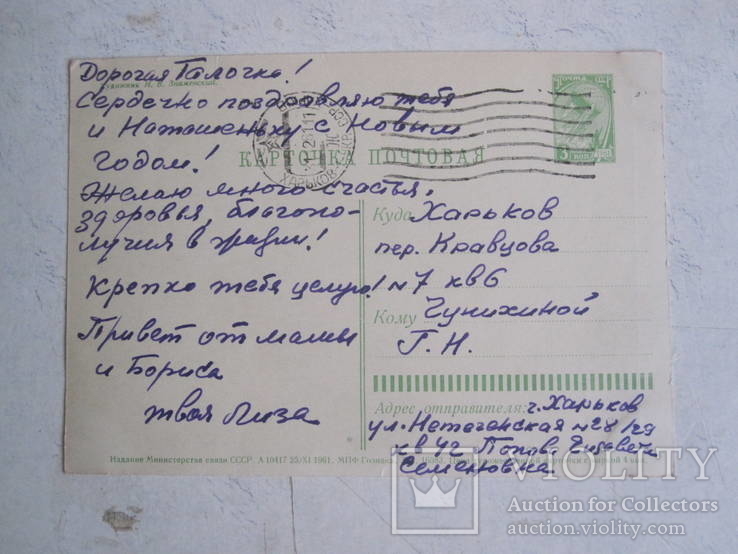 Дорогая Галочка!
Художник Н. В. Знаменский.
Сердечно поздравляю тебя
и Наташеньку с Новым
годом!
Желаю много счастья,
здоровья, благопо-
лучия в жизни!
Крепко тебя целую!
Привет от мамы
и Бориса
твоя Лиза
ПОЧТА СССР
3 КОП
ХАРЬКОВ
КАРТОЧКА ПОЧТОВАЯ
Куда Харьков
пер. Кравцова
№7 кв 6
Кому Чунихиной
Г. Н.
Адрес отправителя: г. Харьков
ул. Нетеченская №28/29
кв 42 Попова Елизавета
Семёновна
Издание Министерства связи СССР. А 10417 25/XI 1961. МПФ Гознака
VIOLITY
Auction for Collectors
auction.violity.com